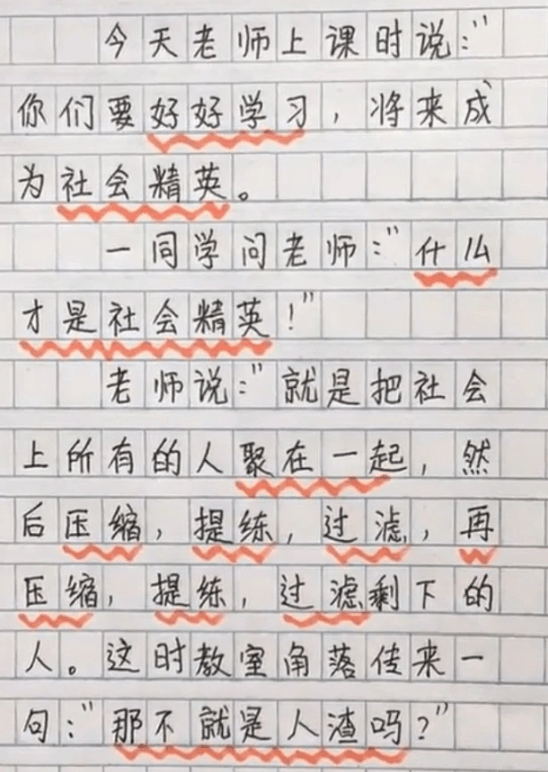 今天老师上课时说:"
你们要好好学习,将来成
为社会精英。
一同学问老师:"什么
才是社会精英!"
老师说:"就是把社会
上所有的人聚在一起,然
后压缩,提练,过滤,再
压缩,提练,过滤剩下的
人。这时教室角落传来一
句:"那不就是人渣吗?"